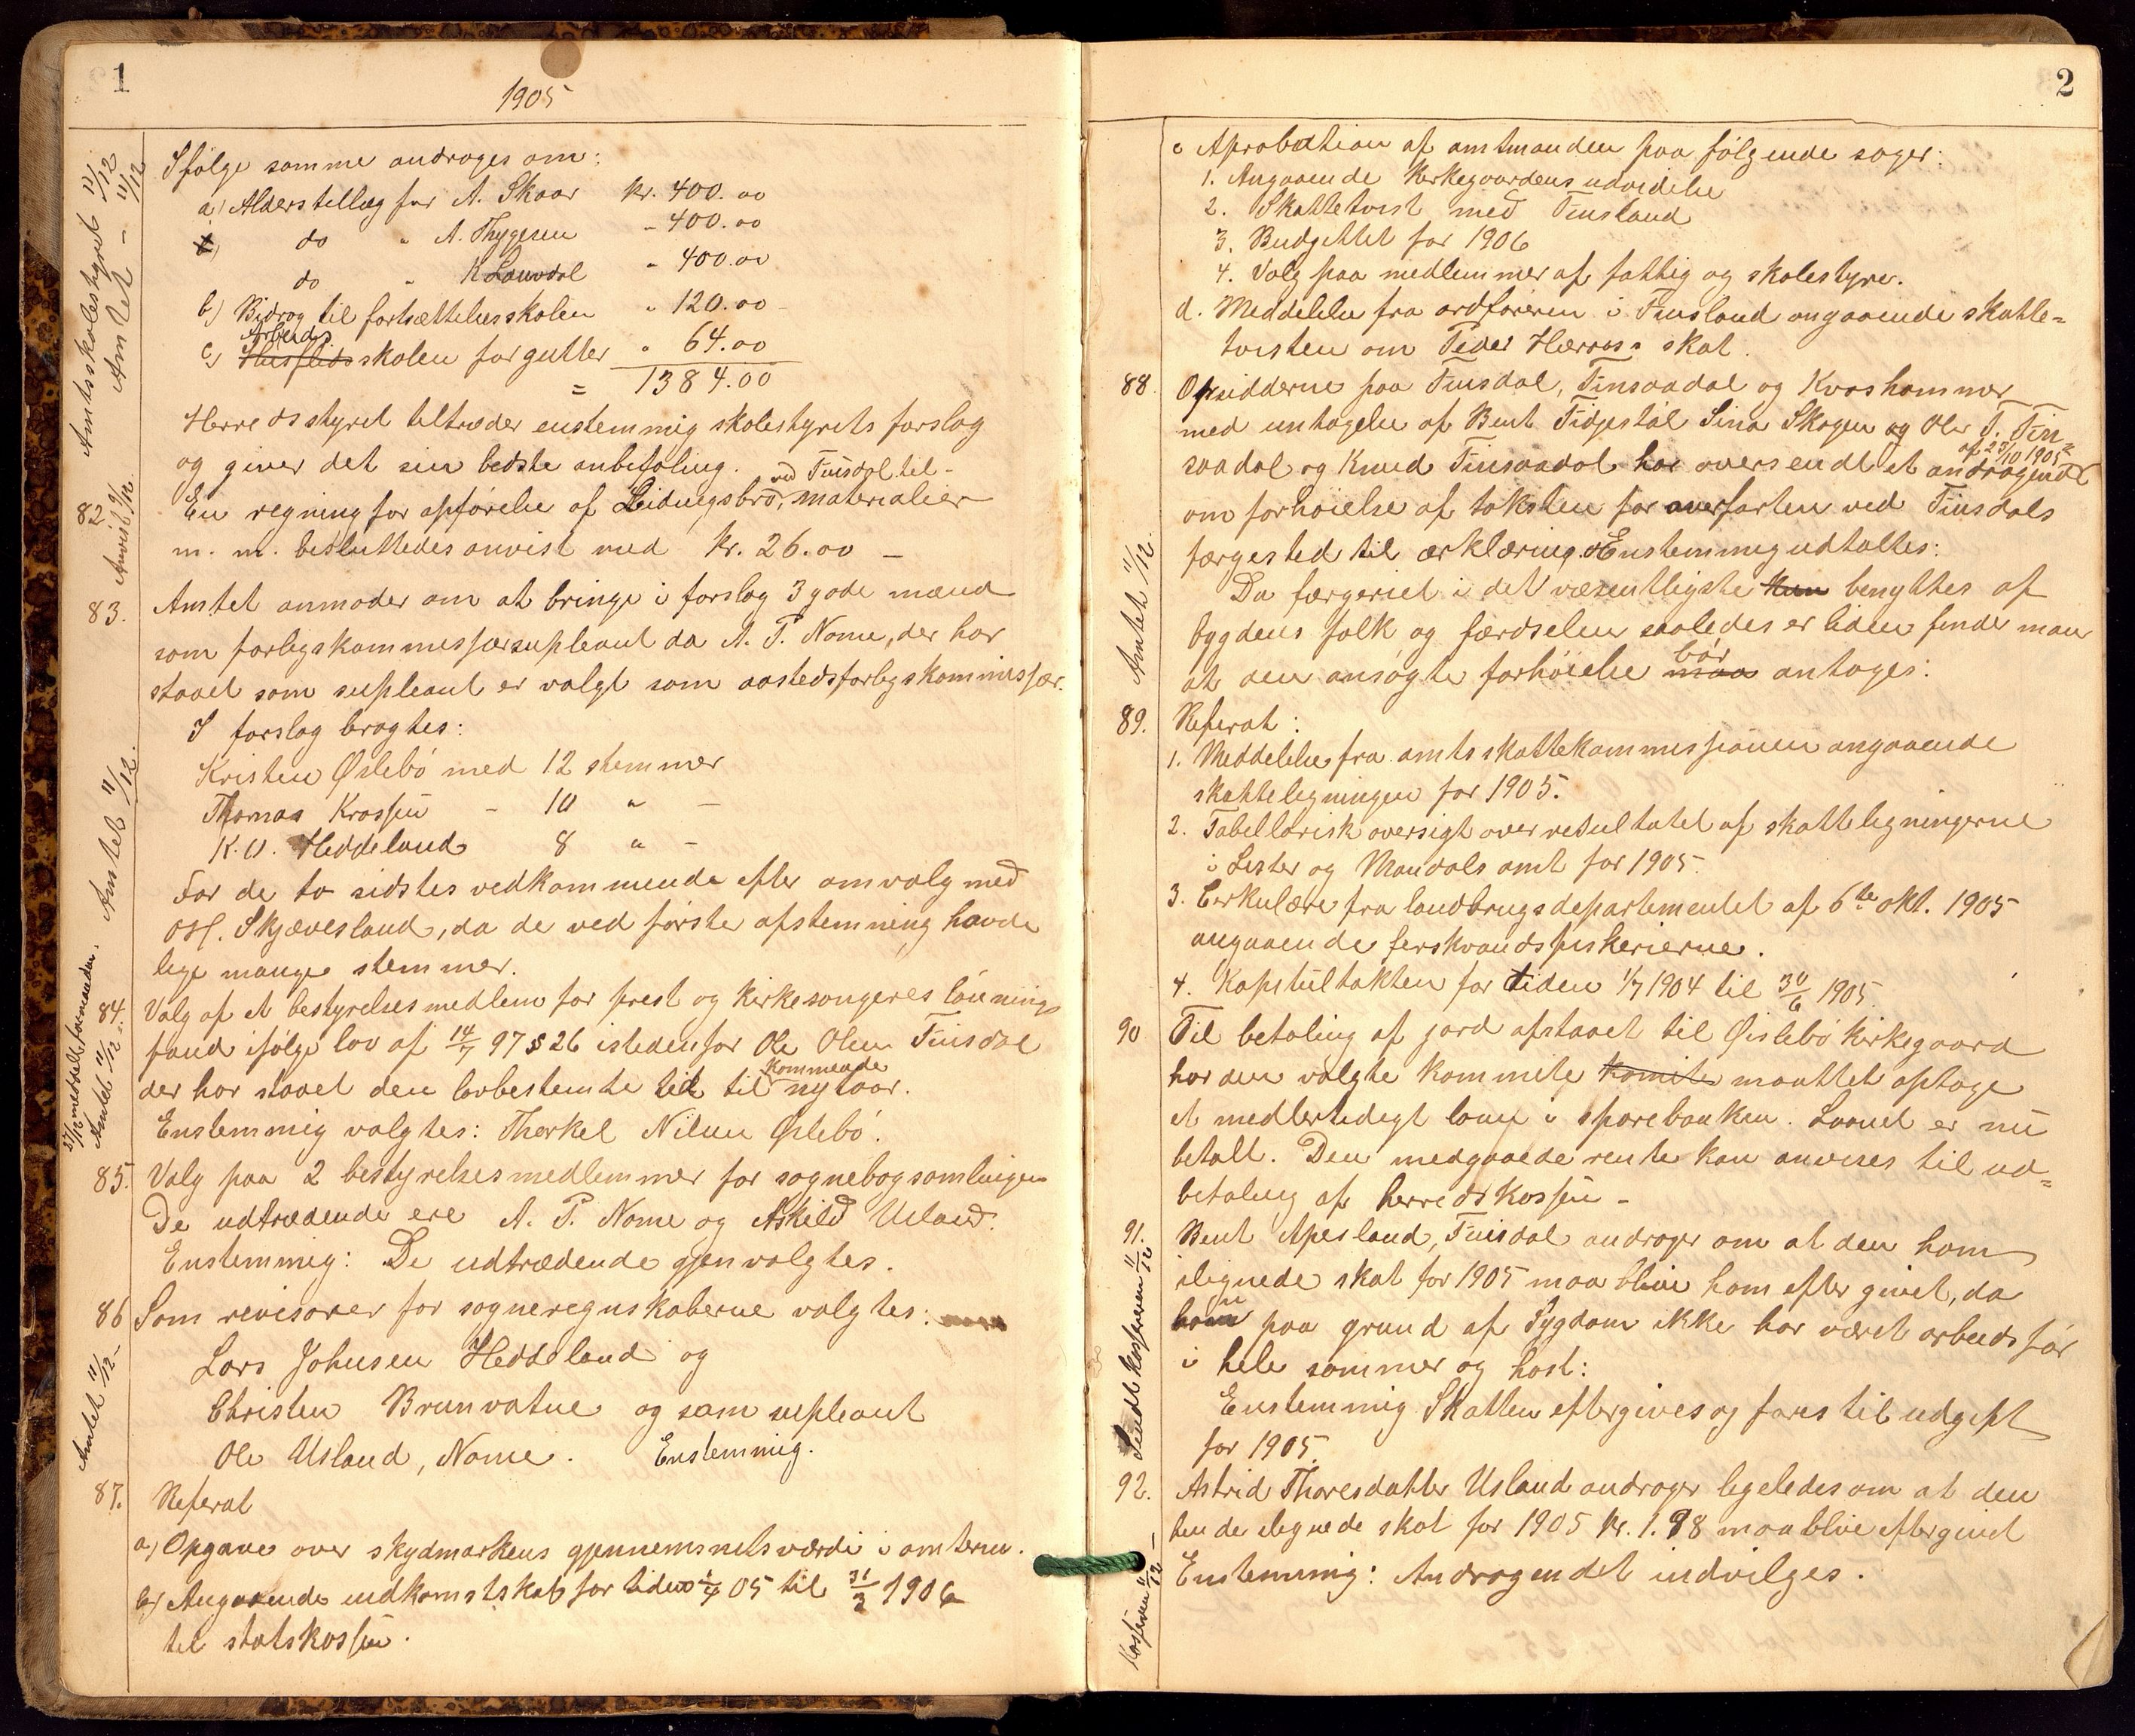 1
1905
Amtsskolestyret 11/12
Amtet - 11/12
Ifølge samme androges om:
a) Alderstillæg for A. Skaar kr. 400.00
do " A. Thygesen - 400.00
do " K Lauvdal " 400.00
b) Bidrag til fortsættelsesskolen " 120.00
Arbeids
c) Husflidsskolen for gutter " 64.00
= 1384.00
Herredsstyret tiltræder enstemmig skolestyrets forslag
og giver det sin bedste anbefaling.
ved Tiusdal til-
82 Anvist 9/12. En regning for opførelse af Leidingsbrø, materialier
m. m. besluttedes anvist med kr. 26.00 -
83. Amtet anmoder om at bringe i forslag 3 gode mænd
som forligskommissærsupleant da A. P. Nome, der har
staaet som supleant er valgt som aastedsforligskommissær.
Amtet 11/12.
I forslag bragtes:
Kristen Øslebö med 12 stemmer
Thomas Krossen - 10 " -
K. O. Heddeland 8 " -
For de to sidstes vedkommende efter omvalg med
O. H. Skjævesland, da de ved første afstemning havde
lige mange stemmer.
27/12 meddelt formanden.
Amtet 11/12.
84. Valg af et bestyrelsesmedlem for prest og kirkesangeres lønnings
fond ifølge lov af 14/7 97 § 26 istedenfor Ole Olsen Tiusdal
kommende
der har staaet den lovbestemte tid til nytaar.
Enstemmig valgtes: Therkel Nilsen Øslebö.
85. Valg paa 2 bestyrelsesmedlemmer for sognebogsamlingen
De udtrædende ere A. P. Nome og Askild Usland.
Enstemmig: De udtrædende gjenvalgtes.
86 Som revisorer for sogneregnskaberne valgtes:
Amtet 11/12-
Lars Johnsen Heddeland og
Christen Brunvatne og som supleant
Ole Usland, Nome. Enstemmig.
87. Referat
a) Opgave over skydmarkens gjennemsnitsværdi i amterne.
b) Angaaende indkomstskat for tiden 1/4 05 til 31/3 1906
til statskassen.
2
c Aprobation af amtmanden paa følgende sager:
1. Angaaende Kirkegaardens udvidelse
2. Skattetvist med Finsland
3. Budgettet for 1906
4. Valg paa medlemmer af fattig og skolestyre.
d. Meddelelse fra ordføreren i Finsland angaaende skatte=
tvisten om Peder Hærass skat.
88. Opsidderne paa Tiusdal, Finsaadal og Kvashammer
med untagelse af Bent Fidjestøl Sina Skogen og Ole T. Fin=
af 25/10 1905
saadal og Knud Finsaadal har oversendt et andragende
om forhøielse af taksten for overfarten ved Tiusdals
færgested til erklæring. Enstemmig udtaltes:
Amtet 11/12.
Da færgeriet i det væsentligste kun benyttes af
bygdens folk og færdselen saaledes er liden finder man
bör
at den ansøgte forhöielse maa antages:
89. Referat:
1. Meddelelse fra amtsskattekommissionen angaaende
skatteligningen for 1905.
2. Tabellarisk oversigt over resultatet af skatteligningerne
i Lister og Mandals amt for 1905.
3. Cirkulære fra landbrugsdepartementet af 6te okt. 1905
angaaende ferskvandsfiskerierne.
4. Kapitultakten for tiden 1/7 1904 til 30/6 1905.
90 Til betaling af jord afstaaet til Øislebö kirkegaard
har den valgte kommite komite maattet optage
et medlertidigt laan i sparebanken. Laanet er nu
betalt. Den medgaaede rente kan anvises til ud=
betaling af herredskassen -
91. Sendt kassereren 11/12
Bent Apesland, Tiusdal androger om at den ham
ilignede skat for 1905 maa blive ham efter givet, da
han paa grund af Sygdom ikke har været arbeidsfør
i hele sommer og høst:
Enstemmig Skatten eftergives og føres til udgift
for 1905.
92. Kasseren 11/12 -
Astrid Tharesdatter Usland androger ligeledes om at den
hende ilignede skat for 1905 kr. 1.98 maa blive eftergivet
Enstemmig: Andragendet indvilges.